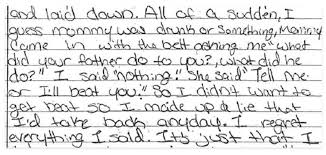 and laid down. All of a sudden, I
guess mommy was drunk or something, Mommy
Came in with the belt asking me "what
did your father do to you?, what did he
do?" I said "nothing." She said "Tell me
or I'll beat you." So I didn't want to
get beat so I made up a lie that
I'd take back anyday. I regret
everything I said. It's just that I